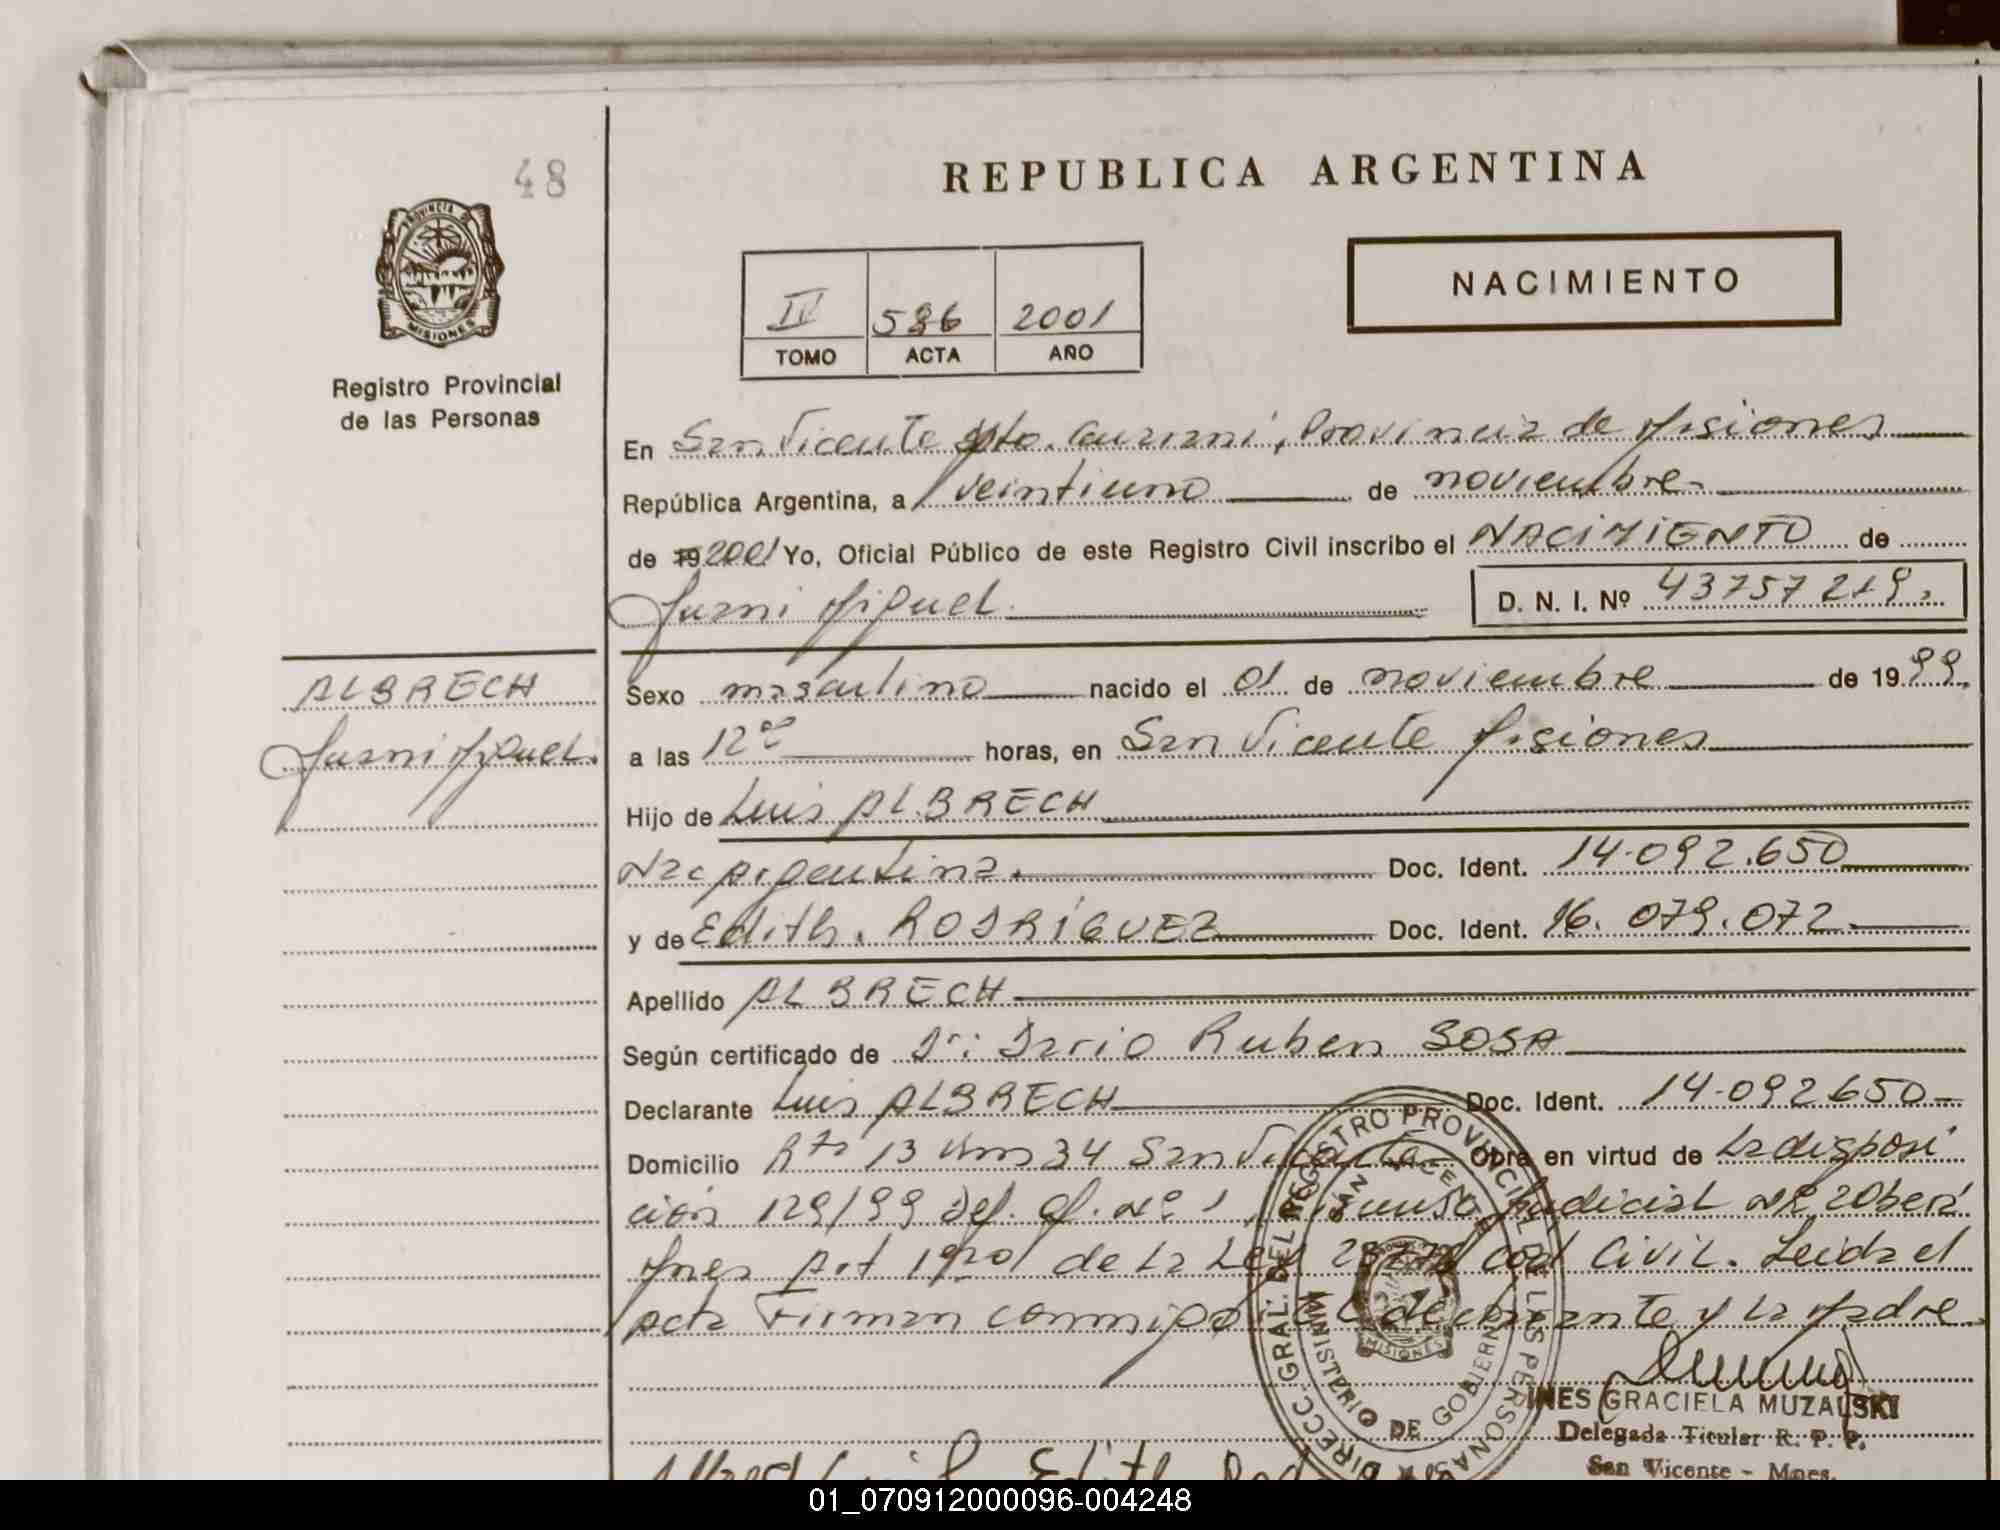 48
REPUBLICA ARGENTINA
PROVINCIA DE
MISIONES
Registro Provincial
de las Personas
IV 586 2001
TOMO ACTA AÑO
NACIMIENTO
En San Vicente Dpto. Guaraní, Provincia de Misiones
República Argentina, a veintiuno de noviembre
de 19 2001 Yo, Oficial Público de este Registro Civil inscribo el NACIMIENTO de
Juan Miguel. D. N. I. Nº 43757219
ALBRECH
Juan Miguel.
Sexo masculino nacido el 01 de noviembre de 1999.
a las 12 horas, en San Vicente Misiones
Hijo de Luis ALBRECH
Nac Argentina. Doc. Ident. 14.092.650
y de Edith. RODRIGUEZ Doc. Ident. 16.079.072.
Apellido ALBRECH
Según certificado de Dr: Dario Ruben SOSA
Declarante Luis ALBRECH Doc. Ident. 14.092650
Domicilio Rta 13 Km 34 San Vicente Obra en virtud de La disposi
ción 129/99 Def. Of. Nº 1, Judicial Oberá
Mnes Art de La Ley Cod Civil. Leida el
Acta Firman conmigo el declarante y La Madre.
DIRECC. GRAL. DEL REGISTRO PROVINCIAL DE LAS PERSONAS
SAN VICENTE
MINISTERIO DE GOBIERNO
MISIONES
INES GRACIELA MUZALSKI
Delegada Titular R. P. P.
San Vicente - Mnes.
Edith
01_070912000096-004248